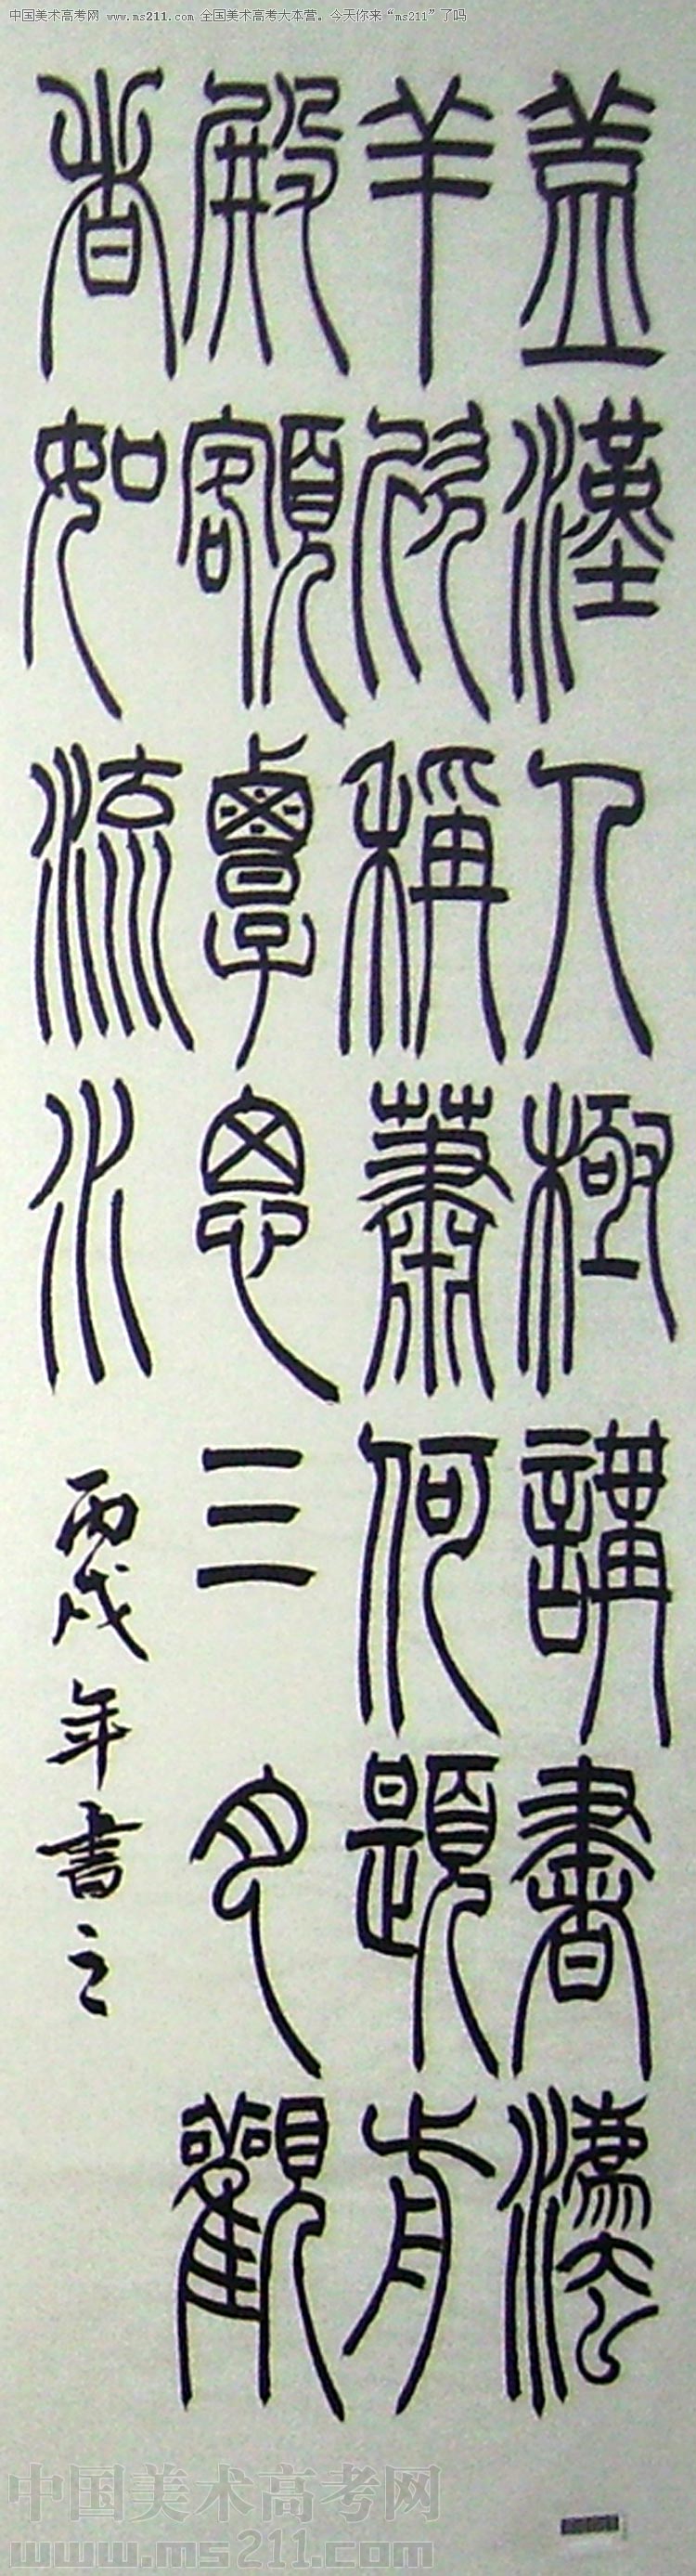 中国美术高考网 www.ms211.com 全国美术高考大本营。今天你来“ms211”了吗
蓋漢人極講書灋
羊欣稱蕭何題前
殿額覃思三月觀
者如流水
丙戌年書之
中国美术高考网
www.ms211.com